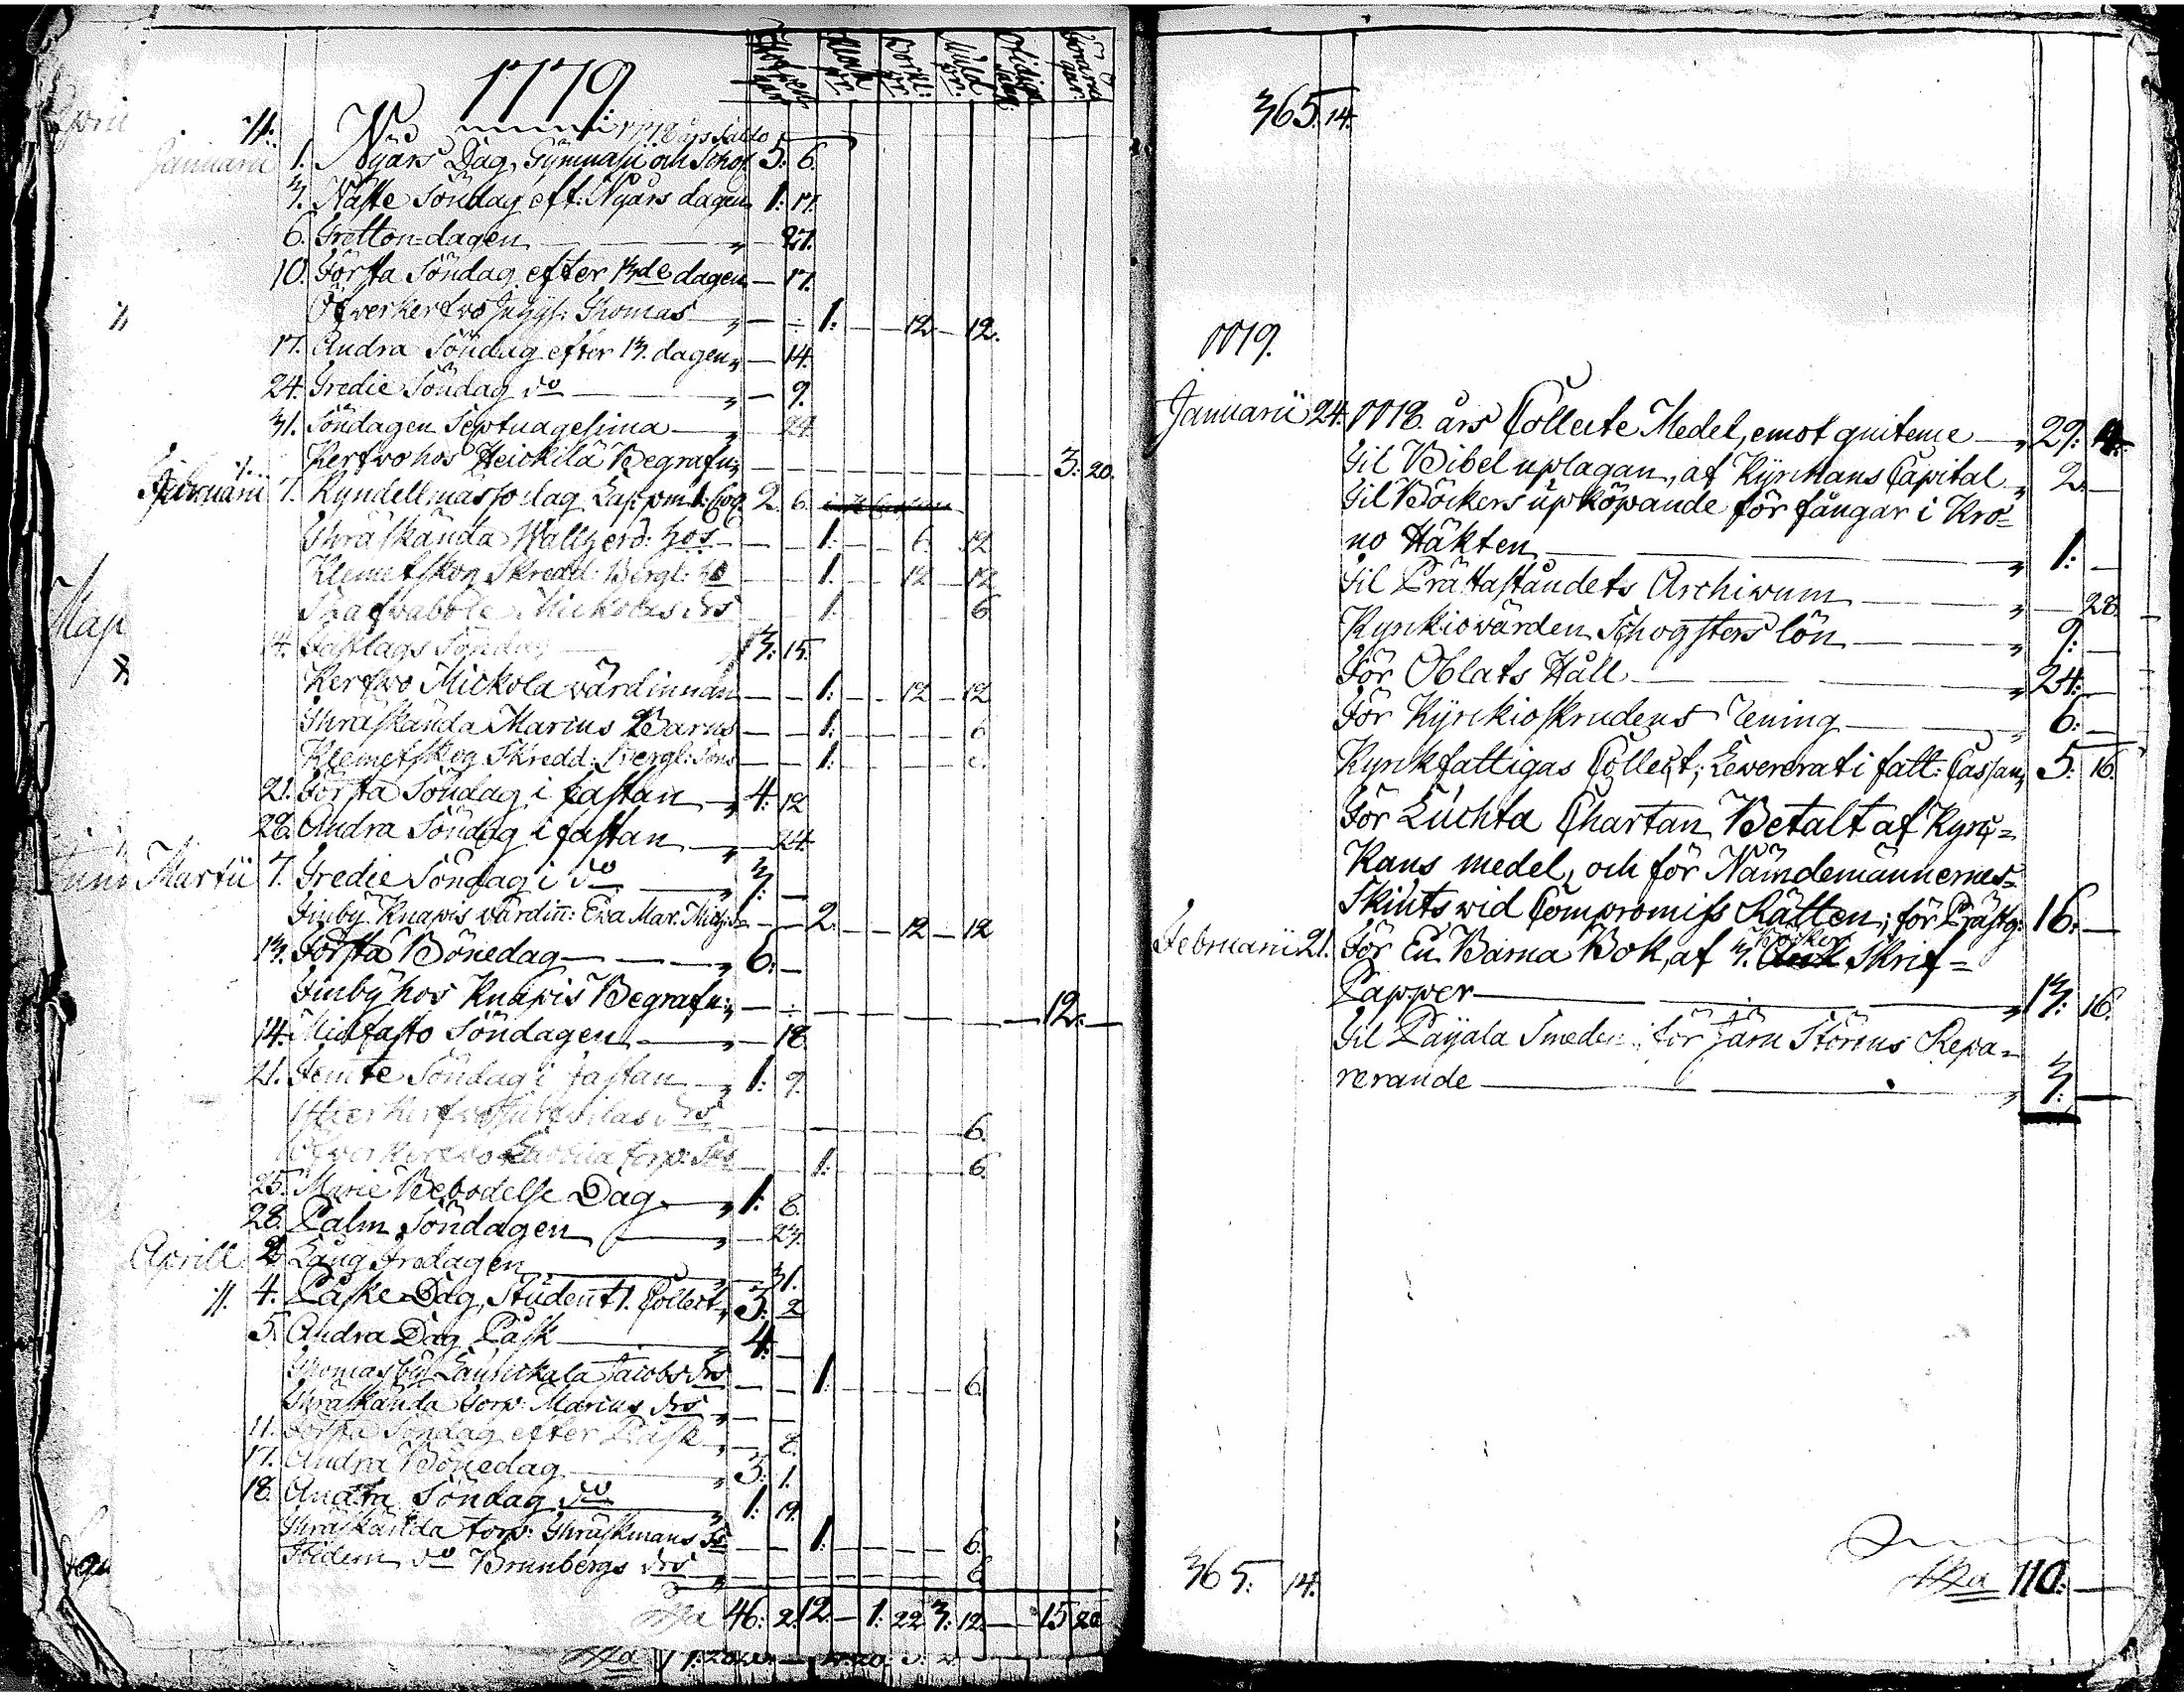 1779.
Januarii 1. Nyårs Dag, Gymnasii och Schol. 5: 6.
3. Näste Söndag eft: Nyårs dagen 1: 17.
6. Tretton-dagen — 27.
10. Första Söndag efter 13de dagen — 17.
Öfwerkerfwo Thomas 1: — 12 — 12.
17. Andra Söndag efter 13. dagen — 14.
24. Tredie Söndag do — 9.
31. Söndagen Septuagesima — 24
Kerfwo hos Heickilä Begrafn: 3: 20.
Februarii 7. Kyndellmässo dag Lappm: Coll. 2 6.
Thräskända 1: — 6 12
Klemetskog Skredd: Bergl: 1: — 12 — 12
Mickolas drs 1: 6
14. Fastlags Söndag 3: 15.
Kerfwo Mickola wärdinnan 1: — 12 — 12
Thräskända Marius Barns 1: 6
Klemetskog Skredd: Bergl: Sons 1:
21. Första Söndag i fastan 4: 12
28. Andra Söndag i fastan — 24.
Martii 7. Tredie Söndag i do 3: —
Finby Knapis wärdin: Eva Mar. 2 — 12 — 12
13. Första Bönedag 6: —
Finby hos Knapis Begrafn: 12. —
14. Midfasto Söndagen — 18
21. Femte Söndag i fastan 1: 9.
drs 6.
1: 6.
25. Marie Bebodelse Dag 1: 8.
28. Palm Söndagen — 23.
Aprill 2. Lång fredagen — 31.
4. Påske Dag, Student Collect 3: 2
5. Andra Dag Påsk 4: —
Thomasby Jacobs drs 1: 6.
Thräskända torp: Marius drs
11. Första Söndag efter Påsk — 8.
17. Andra Bönedag 3: 1.
18. Andra Söndag do 1: 19.
Thräskända torp: Thräskmans 1: 6.
Ibidem do Brunbergs drs 6
46: 2. 12. — 1: 22 3: 12. — 15 20
365. 14.
1779.
Januarii 24. 1778. års Collecte Medel, emot quitence 29: 4.
Til Bibel uplagan, af Kyrckans Capital 2. —
Til Böckers upköpande för fångar i Kro=
no Häkten 1: —
Til Prästaståndets Archivum — 28.
Kyrkiowärden Schogsters lön 9: —
För Oblats Håll 24: —
För Kyrkioskrudens Tening 6: —
Kyrkfattigas Collect; Levererat i fatt: Cassan 5: 16.
För Luchta Chartan Betalt af Kyrc=
kans medel, och för Nämdemännernes
Skiuts wid Compromiss Rätten; för Prästg: 16. —
Februarii 21. För En Barna Bok, af 3. Böcker Skrif=
Papper 13: 16.
Til Payala Smeden för järn Störens Repa=
rerande 3: —
365: 14.
110: —